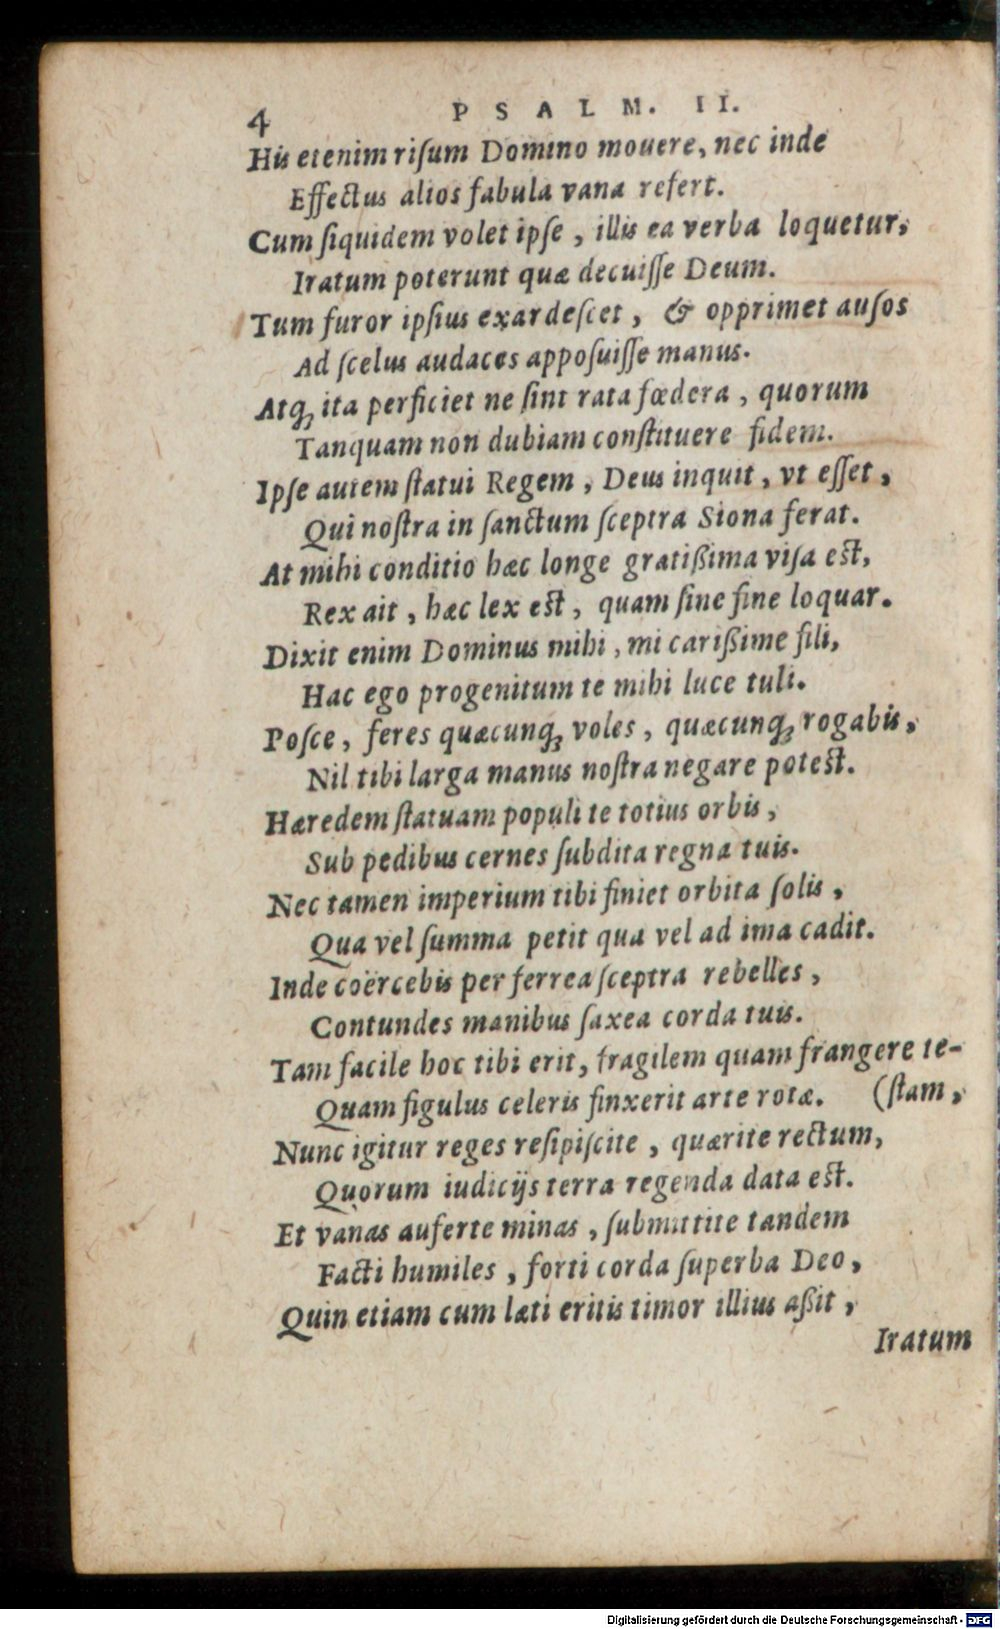 4
PSALM. II.
His etenim riſum Domino mouere, nec inde
Effectus alios fabula vana refert.
Cum ſiquidem volet ipſe, illis ea verba loquetur,
Iratum poterunt quæ decuiſſe Deum.
Tum furor ipſius exardeſcet, & opprimet auſos
Ad ſcelus audaces appoſuiſſe manus.
Atq; ita perficiet ne ſint rata fœdera, quorum
Tanquam non dubiam conſtituere fidem.
Ipſe autem ſtatui Regem, Deus inquit, vt eſſet,
Qui noſtra in ſanctum ſceptra Siona ferat.
At mihi conditio hæc longe gratißima viſa eſt,
Rex ait, hæc lex eſt, quam ſine fine loquar.
Dixit enim Dominus mihi, mi carißime fili,
Hac ego progenitum te mihi luce tuli.
Poſce, feres quæcunq; voles, quæcunq; rogabis,
Nil tibi larga manus noſtra negare poteſt.
Hæredem ſtatuam populi te totius orbis,
Sub pedibus cernes ſubdita regna tuis.
Nec tamen imperium tibi finiet orbita ſolis,
Qua vel ſumma petit qua vel ad ima cadit.
Inde coërcebis per ferrea ſceptra rebelles,
Contundes manibus ſaxea corda tuis.
Tam facile hoc tibi erit, fragilem quam frangere te-
Quam figulus celeris finxerit arte rotæ. (ſtam,
Nunc igitur reges reſipiſcite, quærite rectum,
Quorum iudicijs terra regenda data eſt.
Et vanas auferte minas, ſubmittite tandem
Facti humiles, forti corda ſuperba Deo,
Quin etiam cum læti eritis timor illius aßit,
Iratum
Digitalisierung gefördert durch die Deutsche Forschungsgemeinschaft - DFG